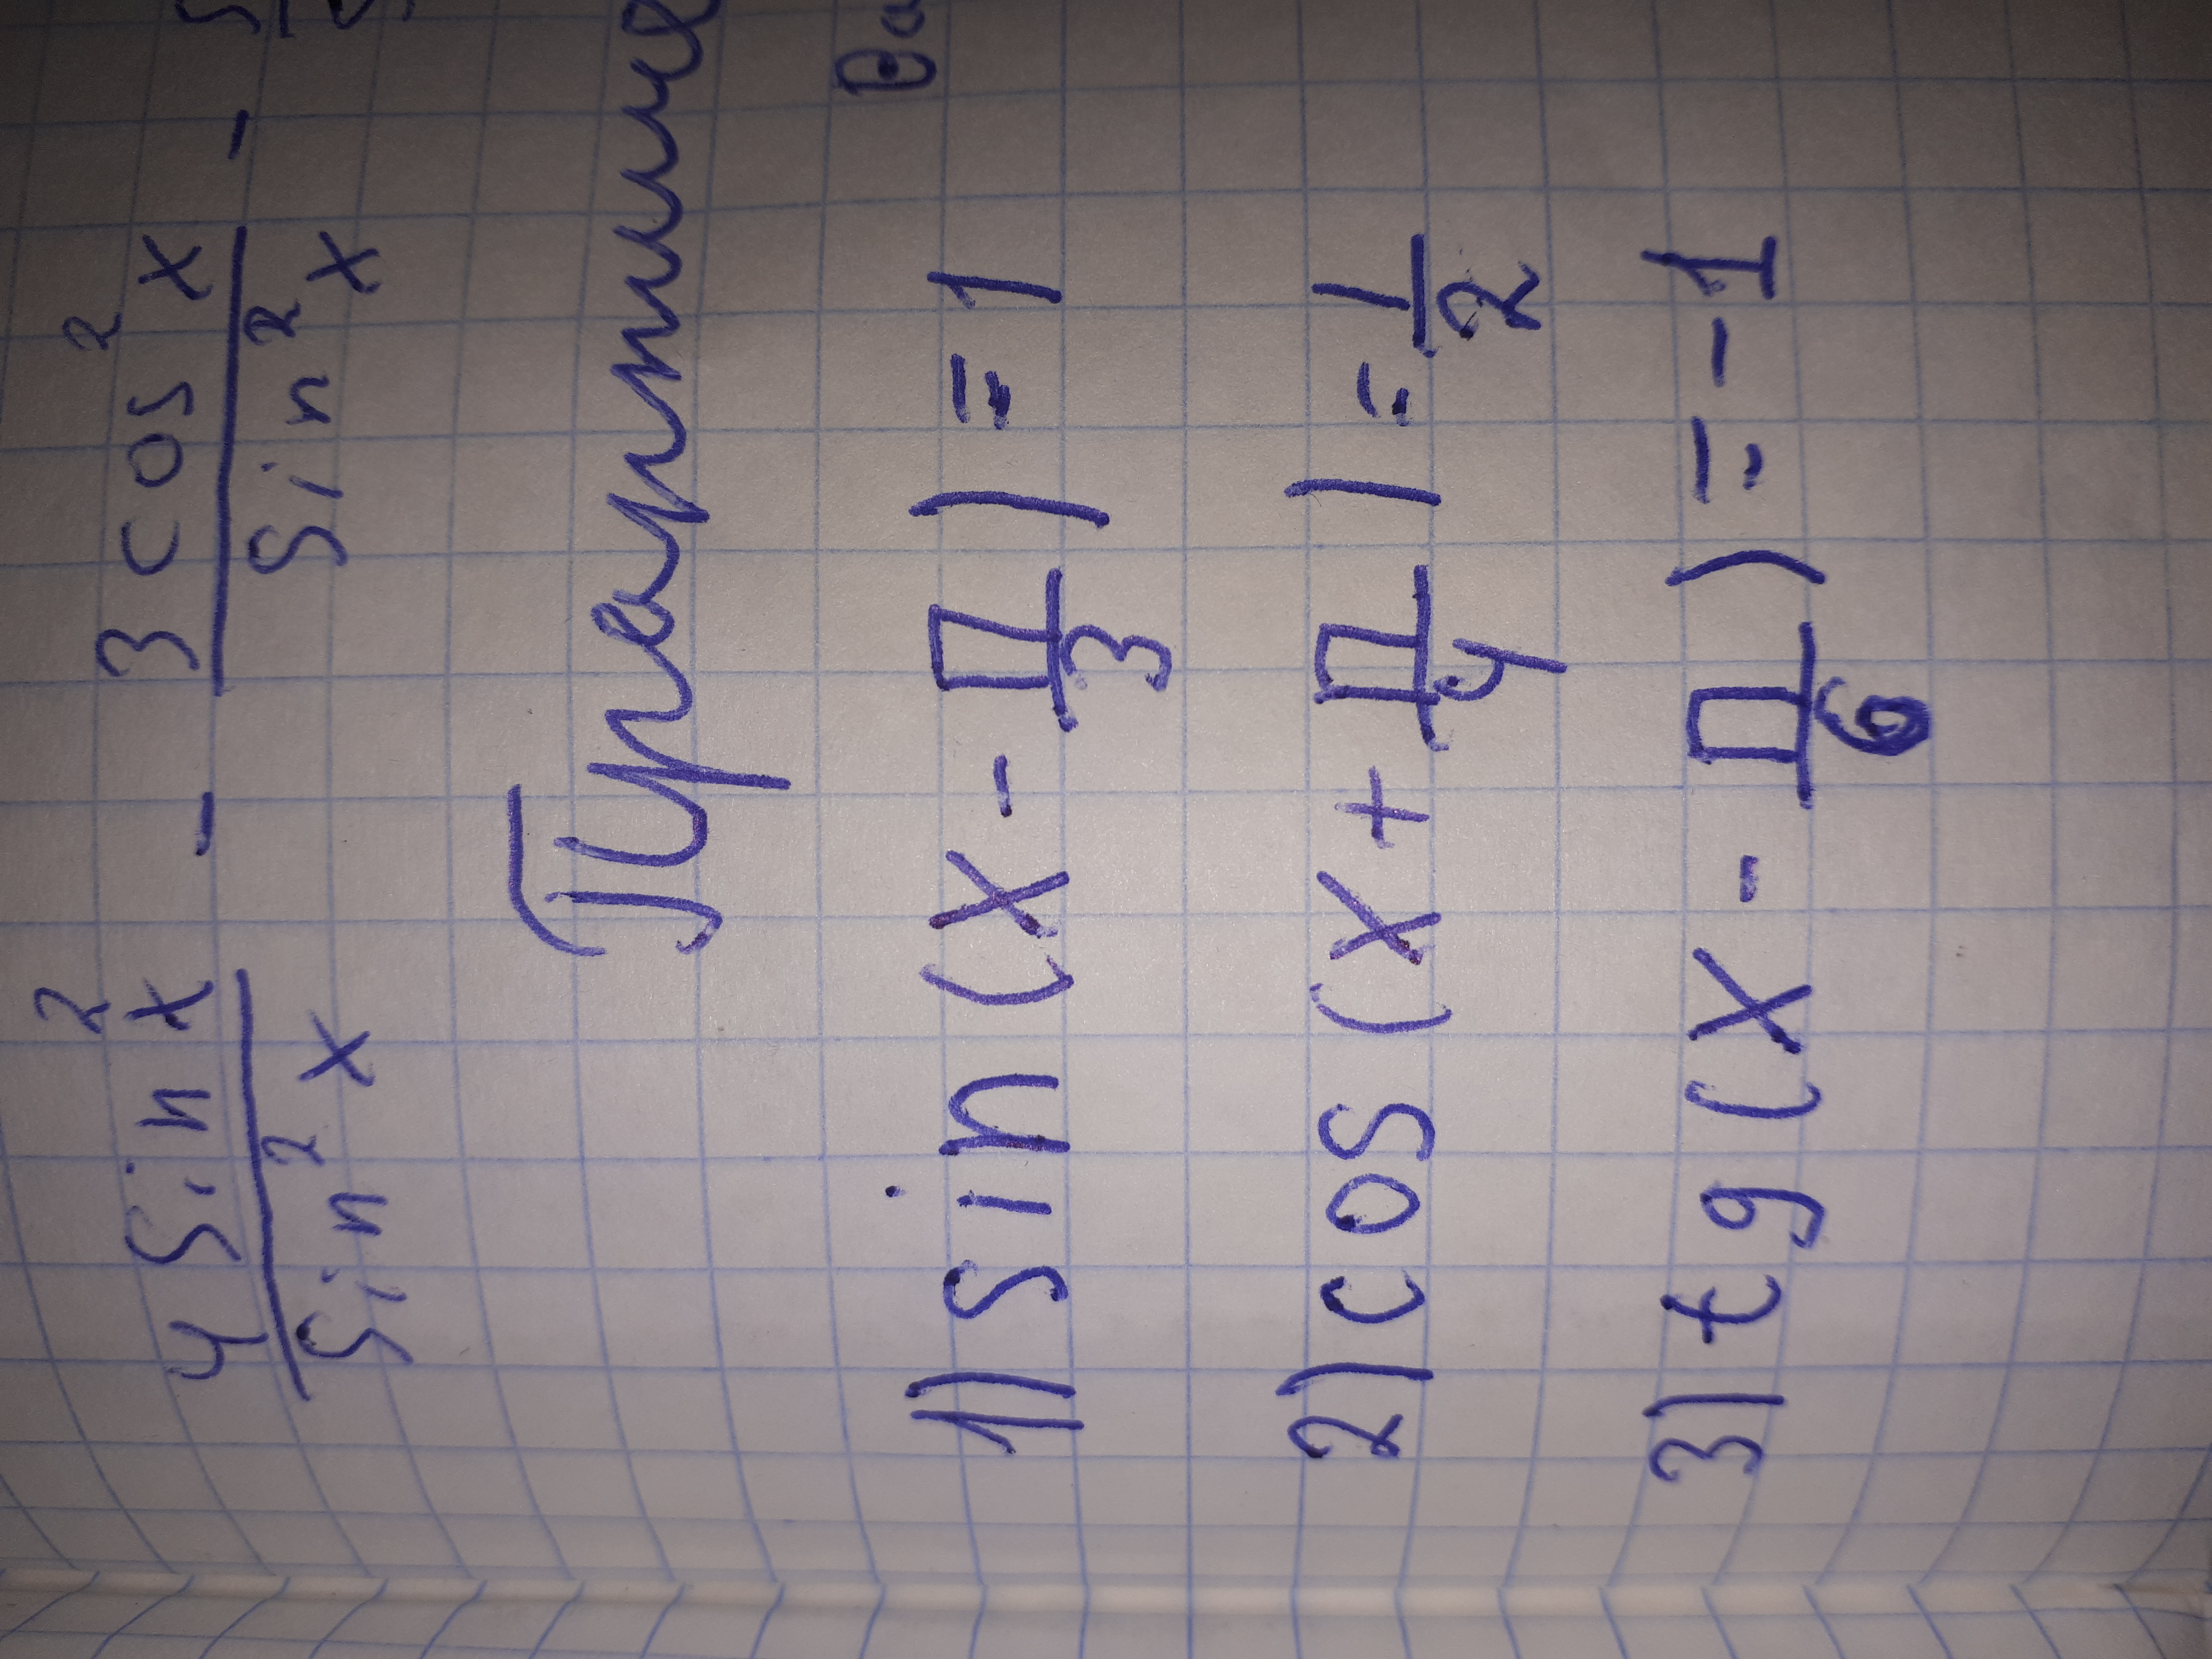 4 sin²x / sin²x - 3 cos²x / sin²x -
Практические
Ва
1) sin (x - π/3) = 1
2) cos (x + π/4) = 1/2
3) tg (x - π/6) = -1